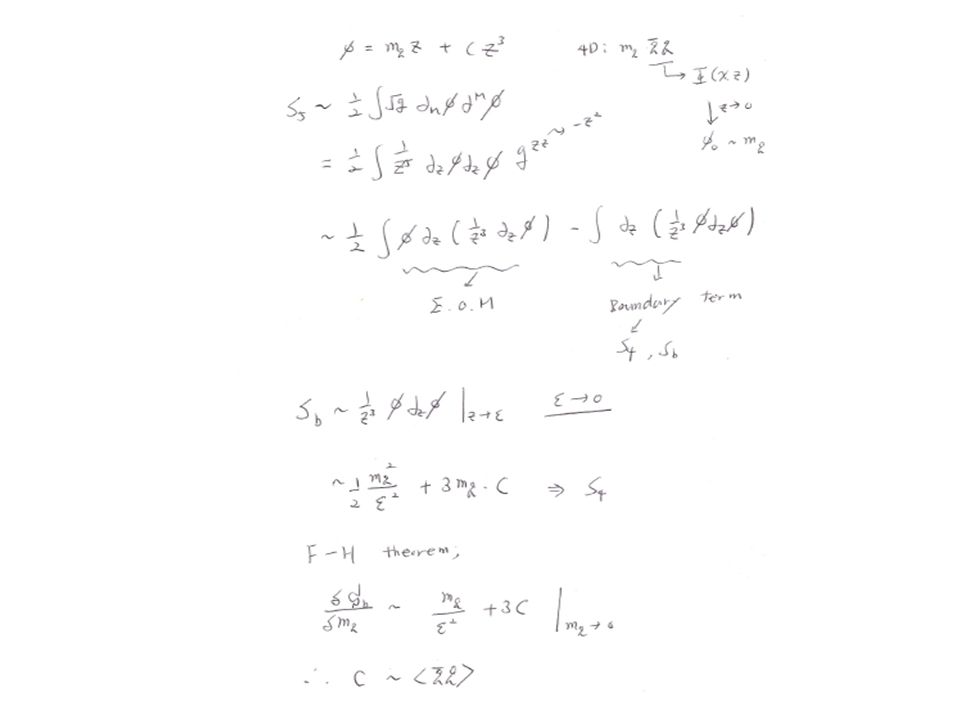 φ = m_q z + C z³    4D: m_q q̄q
↳ Φ(x,z)
S₅ ~ ½ ∫√g ∂_M φ ∂^M φ    ↓ z→0
φ₀ ~ m_q
= ½ ∫ 1/z⁵ ∂_z φ ∂_z φ g^{zz} ⤳ -z²
~ ½ ∫ φ ∂_z ( 1/z³ ∂_z φ ) - ∫ ∂_z ( 1/z³ φ ∂_z φ )
↓    ↓
E.O.M    Boundary term
↓
S₄, S_b
S_b ~ 1/z³ φ ∂_z φ |_{z→ε}    ε→0
~ ½ m_q²/ε² + 3 m_q · C ⇒ S₄
F-H theorem;
δS_b/δm_q ~ m_q/ε² + 3C |_{m_q→0}
∴ C ~ <q̄q>